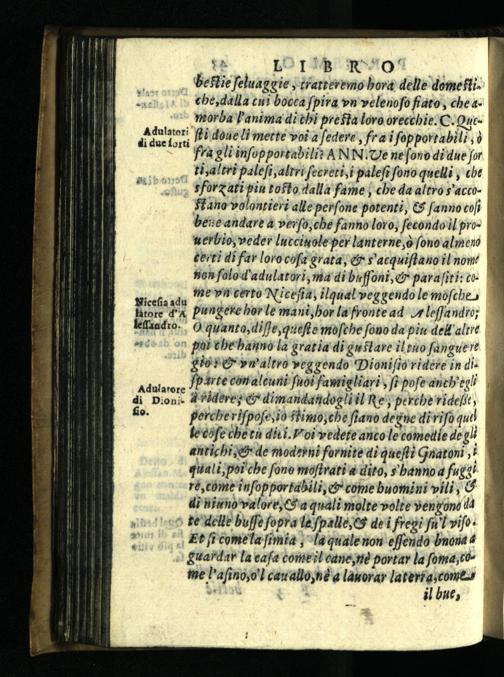 LIBRO
bestie seluaggie, tratteremo hora delle domesti-
che, dalla cui bocca spira vn velenoso fiato, che a-
morba l'anima di chi presta loro orecchie. C. Que-
sti doue li mette voi a sedere, fra i sopportabili, ò
fra gli insopportabili? ANN. Ve ne sono di due sor
ti, altri palesi, altri secreti, i palesi sono quelli, che
sforzati piu tosto dalla fame, che da altro s'acco-
stano volontieri alle persone potenti, & sanno così
bene andare a verso, che fanno loro, secondo il pro-
uerbio, veder lucciuole per lanterne, ò sono almeno
certi di far loro cosa grata, & s'acquistano il nome
non solo d'adulatori, ma di buffoni, & parasiti: co-
me vn certo Nicesia, ilqual veggendo le mosche
pungere hor le mani, hor la fronte ad Alessandro;
O quanto, disse, queste mosche sono da piu dell'altre
poi che hanno la gratia di gustare il tuo sangue re
gio: & vn'altro veggendo Dionisio ridere in di-
sparte con alcuni suoi famigliari, si pose anch'egli
à ridere; & dimandandogli il Re, perche ridesse,
perche rispose, io stimo, che siano degne di riso quel
le cose che tu dici. Voi vedete anco le comedie de gli
antichi, & de moderni fornite di questi Gnatoni, i
quali, poi che sono mostrati a dito, s'hanno a fuggi
re, come insopportabili, & come huomini vili, &
di niuno valore, & a quali molte volte vengono da
te delle busse sopra le spalle, & de i fregi sù'l viso.
Et si come la simia, la quale non essendo buona a
guardar la casa come il cane, nè portar la soma, co-
me l'asino, o'l cauallo, nè a lauorar la terra, come
il bue,
Adulatori
di due sorti
Nicesia adu
latore d'A
lessandro.
Adulatore
di Dioni-
sio.